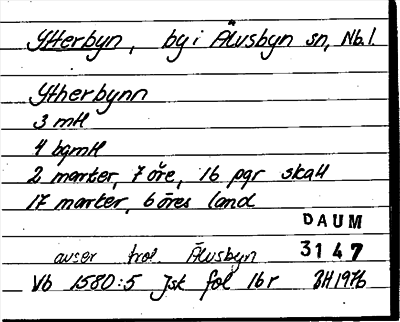 Ytterbyn, by i Älvsbyn sn, Nb.l.
Ytherbynn
3 mtl
4 bgmtl
2 marker, 7 öre, 16 pgr skatt
17 marker, 6 öres land
DAUM
avser trol. Älvsbyn 3147
Vb 1580:5 Jsk fol 16r BH 1976